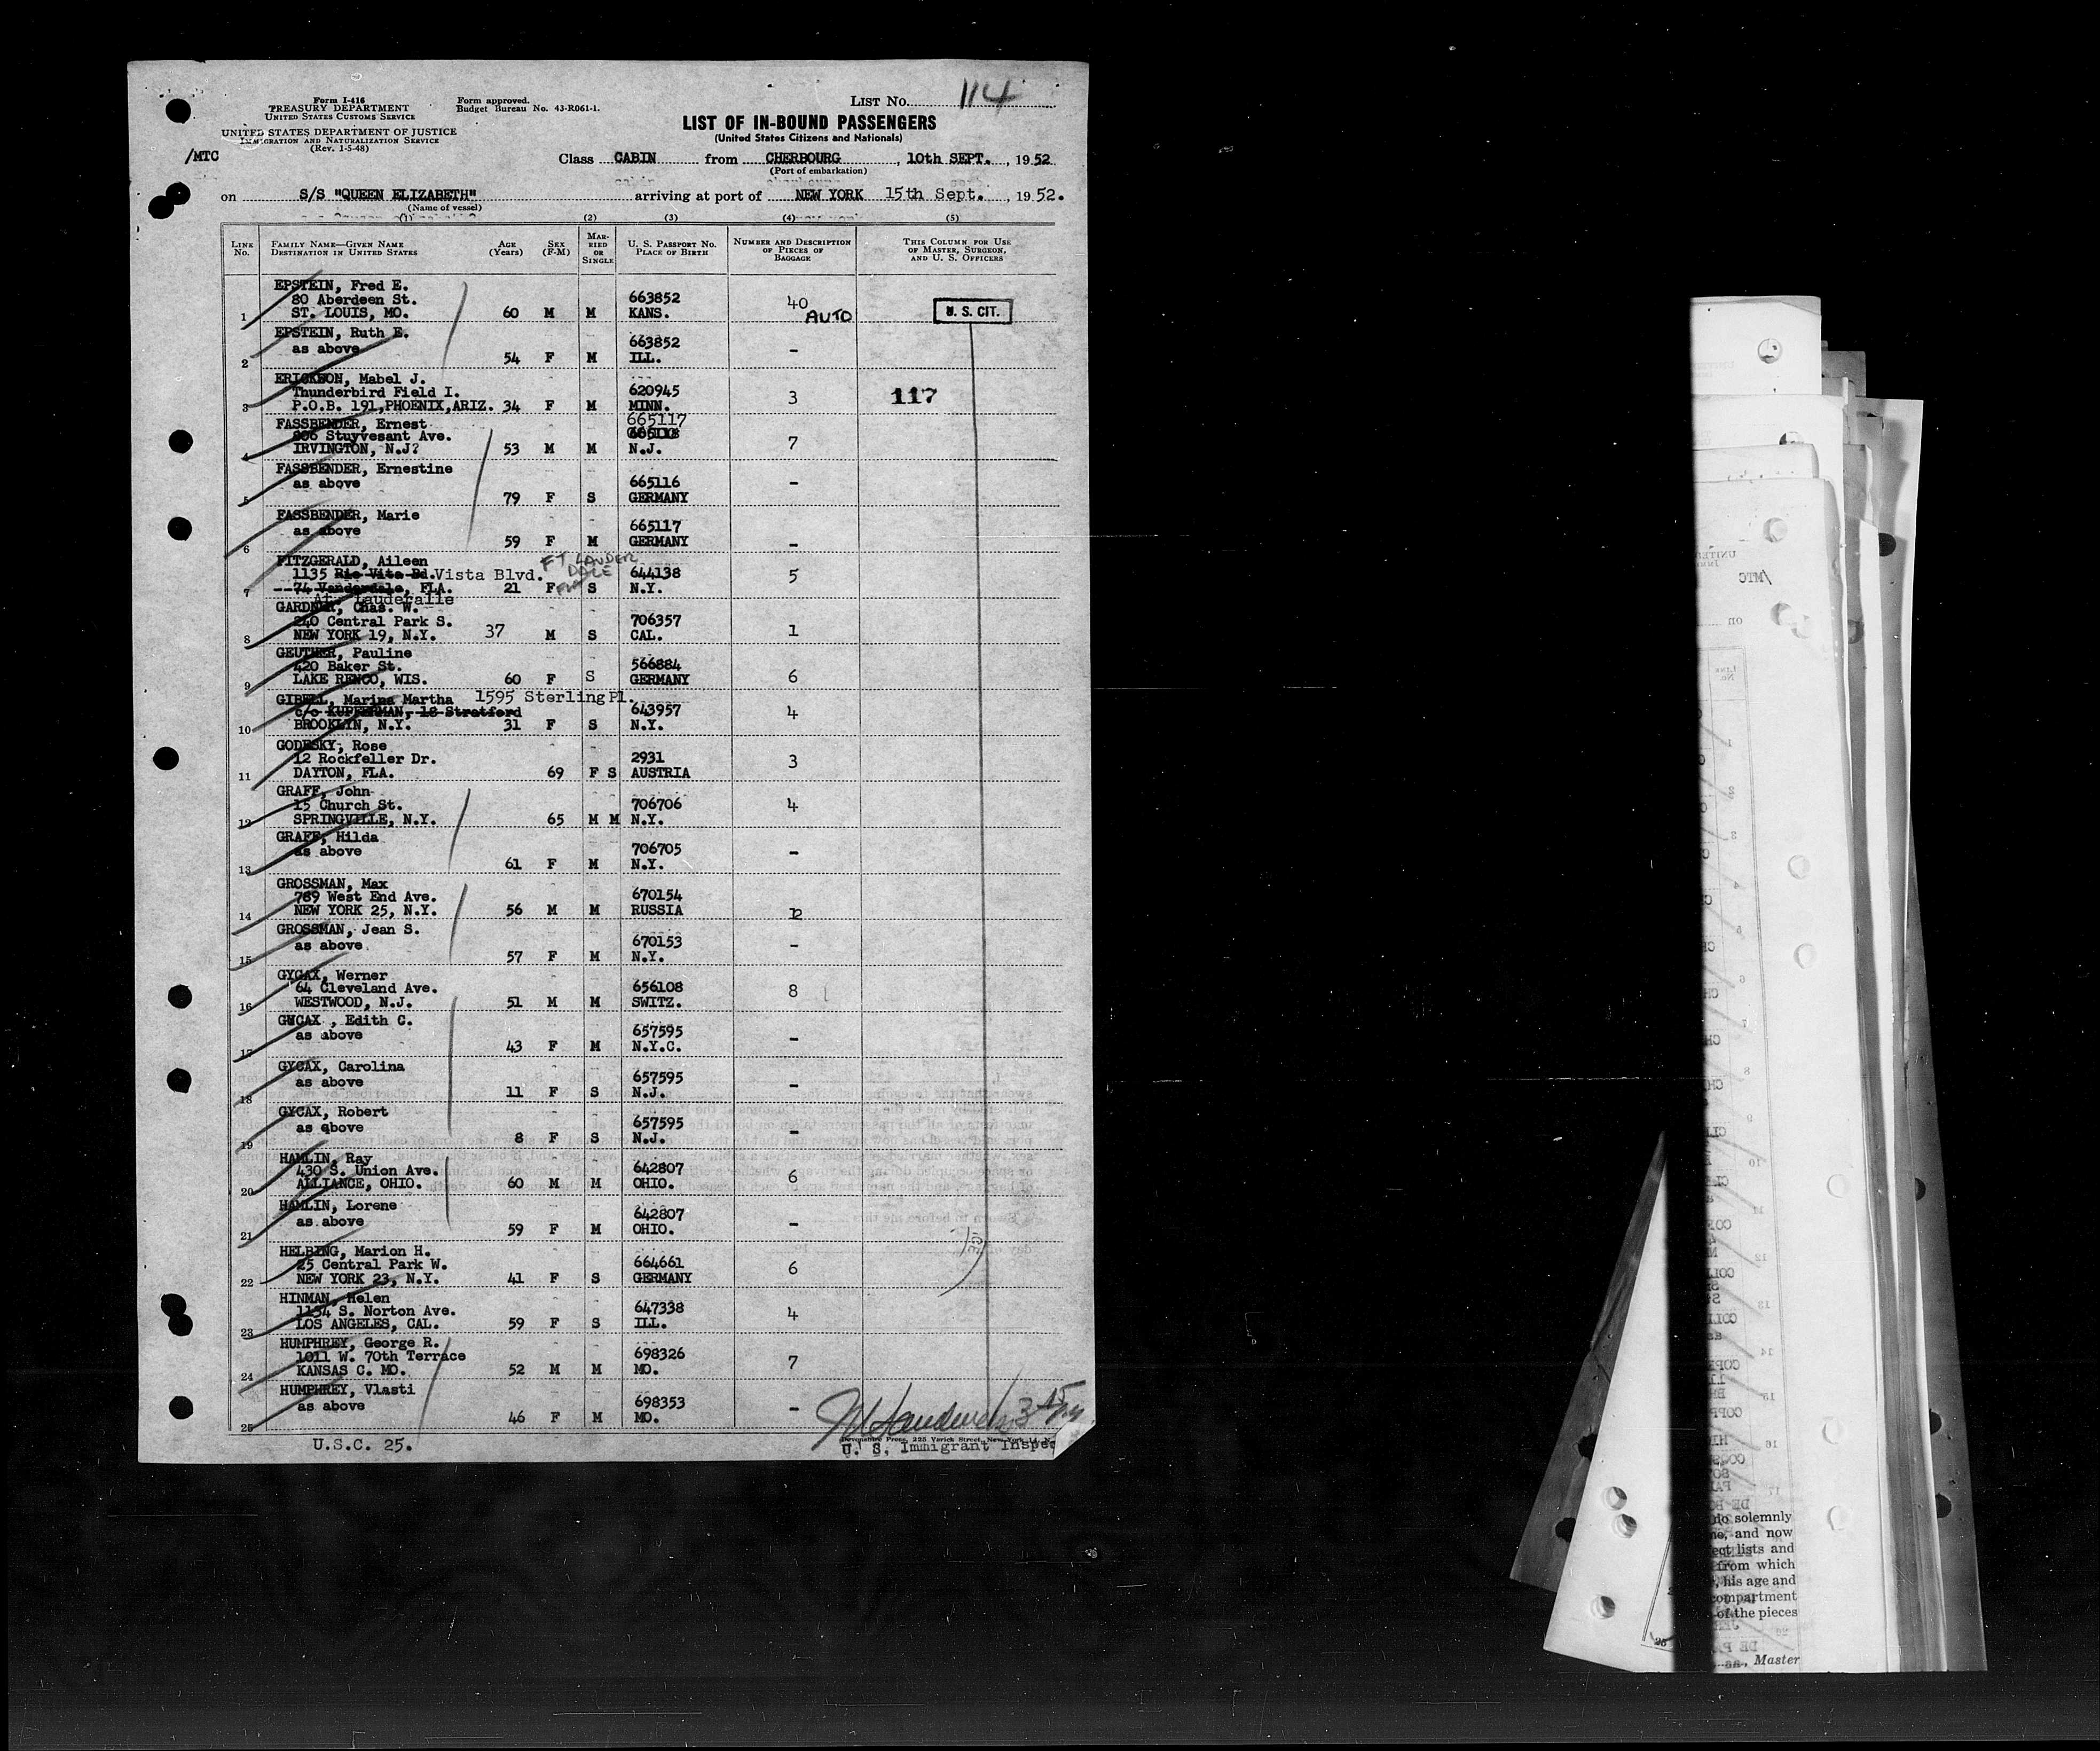 Form I-416
TREASURY DEPARTMENT
UNITED STATES CUSTOMS SERVICE
UNITED STATES DEPARTMENT OF JUSTICE
IMMIGRATION AND NATURALIZATION SERVICE
(Rev. 1-5-48)
/MTC
Form approved.
Budget Bureau No. 43-R061-1.
LIST No. 114
LIST OF IN-BOUND PASSENGERS
(United States Citizens and Nationals)
Class CABIN from CHERBOURG, 10th SEPT., 1952
(Port of embarkation)
on S/S "QUEEN ELIZABETH" arriving at port of NEW YORK 15th Sept., 1952.
(Name of vessel)
(1) (2) (3) (4) (5)
LINE No. FAMILY NAME—GIVEN NAME DESTINATION IN UNITED STATES AGE (Years) SEX (F-M) MARRIED OR SINGLE U. S. PASSPORT NO. PLACE OF BIRTH NUMBER AND DESCRIPTION OF PIECES OF BAGGAGE THIS COLUMN FOR USE OF MASTER, SURGEON, AND U. S. OFFICERS
EPSTEIN, Fred E.
80 Aberdeen St. 663852 40
1 ST. LOUIS, MO. 60 M M KANS. AUTO U. S. CIT.
EPSTEIN, Ruth E. 663852
as above
2 54 F M ILL. -
ERICKSON, Mabel J.
Thunderbird Field I. 620945 3 117
3 P.O.B. 191, PHOENIX, ARIZ. 34 F M MINN.
FASSBENDER, Ernest 665117
906 Stuyvesant Ave. 7
4 IRVINGTON, N.J? 53 M M N.J.
FASSBENDER, Ernestine
as above 665116 -
5 79 F S GERMANY
FASSBENDER, Marie 665117
as above
6 59 F M GERMANY -
FITZGERALD, Aileen FT LAUDERDALE
1135 Rio Vita Bd. Vista Blvd. 644138 5
7 74 Vanderdale, FLA. 21 F FLA S N.Y.
Lauderalle
GARDNER, Chas. W.
240 Central Park S. 706357
8 NEW YORK 19, N.Y. 37 M S CAL. 1
GEUTHER, Pauline
420 Baker St. 566884
9 LAKE RENCO, WIS. 60 F S GERMANY 6
GIBELL, Marina Martha 1595 Sterling Pl.
c/o KUPFERMAN, 18 Stratford 643957 4
10 BROOKLYN, N.Y. 31 F S N.Y.
GODESKY, Rose
12 Rockfeller Dr. 2931 3
11 DAYTON, FLA. 69 F S AUSTRIA
GRAFF, John
15 Church St. 706706 4
12 SPRINGVILLE, N.Y. 65 M M N.Y.
GRAFF, Hilda
as above 706705 -
13 61 F M N.Y.
GROSSMAN, Max
789 West End Ave. 670154
14 NEW YORK 25, N.Y. 56 M M RUSSIA 12
GROSSMAN, Jean S.
as above 670153 -
15 57 F M N.Y.
GYCAX, Werner
64 Cleveland Ave. 656108 8
16 WESTWOOD, N.J. 51 M M SWITZ.
GYCAX , Edith C.
as above 657595
17 43 F M N.Y.C. -
GYCAX, Carolina
as above 657595
18 11 F S N.J. -
GYCAX, Robert
as above 657595
19 8 F S N.J. -
HAMLIN, Ray
430 S. Union Ave. 642807 6
20 ALLIANCE, OHIO. 60 M M OHIO.
HAMLIN, Lorene
as above 642807 -
21 59 F M OHIO.
HELBING, Marion H.
25 Central Park W. 664661 6
22 NEW YORK 23, N.Y. 41 F S GERMANY
HINMAN, Helen
1154 S. Norton Ave. 647338 4
23 LOS ANGELES, CAL. 59 F S ILL.
HUMPHREY, George R.
1011 W. 70th Terrace 698326 7
24 KANSAS C. MO. 52 M M MO.
HUMPHREY, Vlasti
as above 698353 -
25 46 F M MO.
U.S.C. 25.
Devonshire Press, 225 Varick Street, New York
U. S. Immigrant Inspec
do solemnly
and now
lists and
from which
his age and
compartment
of the pieces
Master